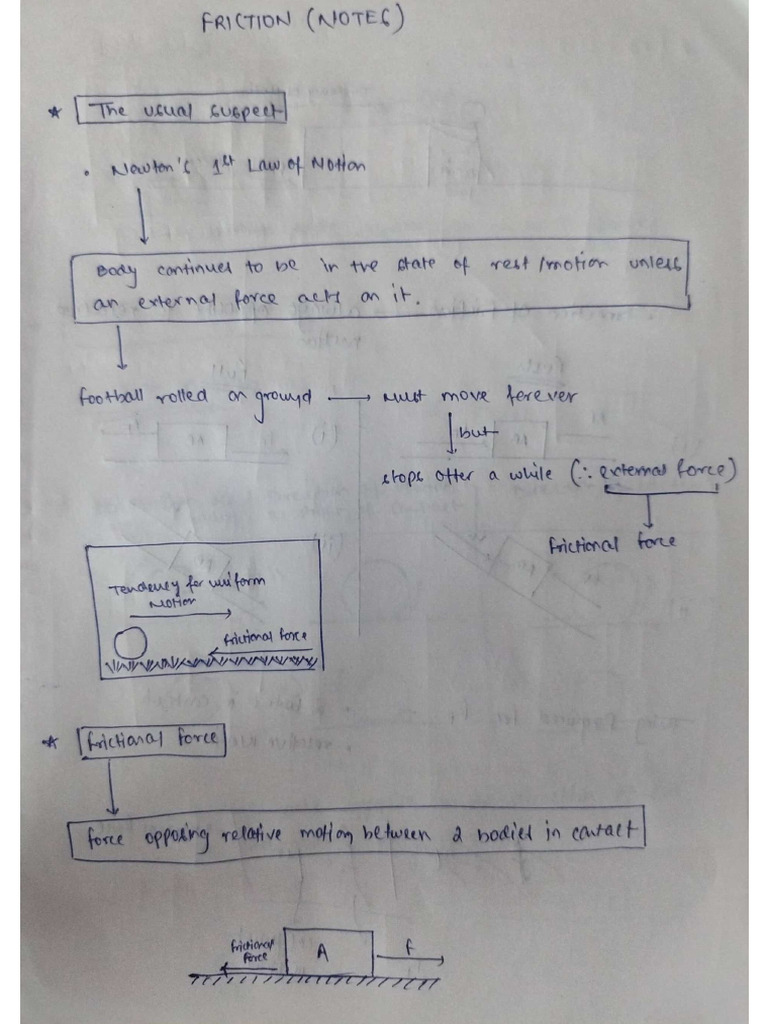 FRICTION (NOTES)
* The usual suspect
• Newton's 1st Law of Motion
Body continues to be in the state of rest/motion unless
an external force acts on it.
football rolled on ground → Must move forever
but
stops after a while (∵ external force)
frictional force
Tendency for uniform
Motion
frictional force
* frictional force
force opposing relative motion between 2 bodies in contact
frictional
force
A
F